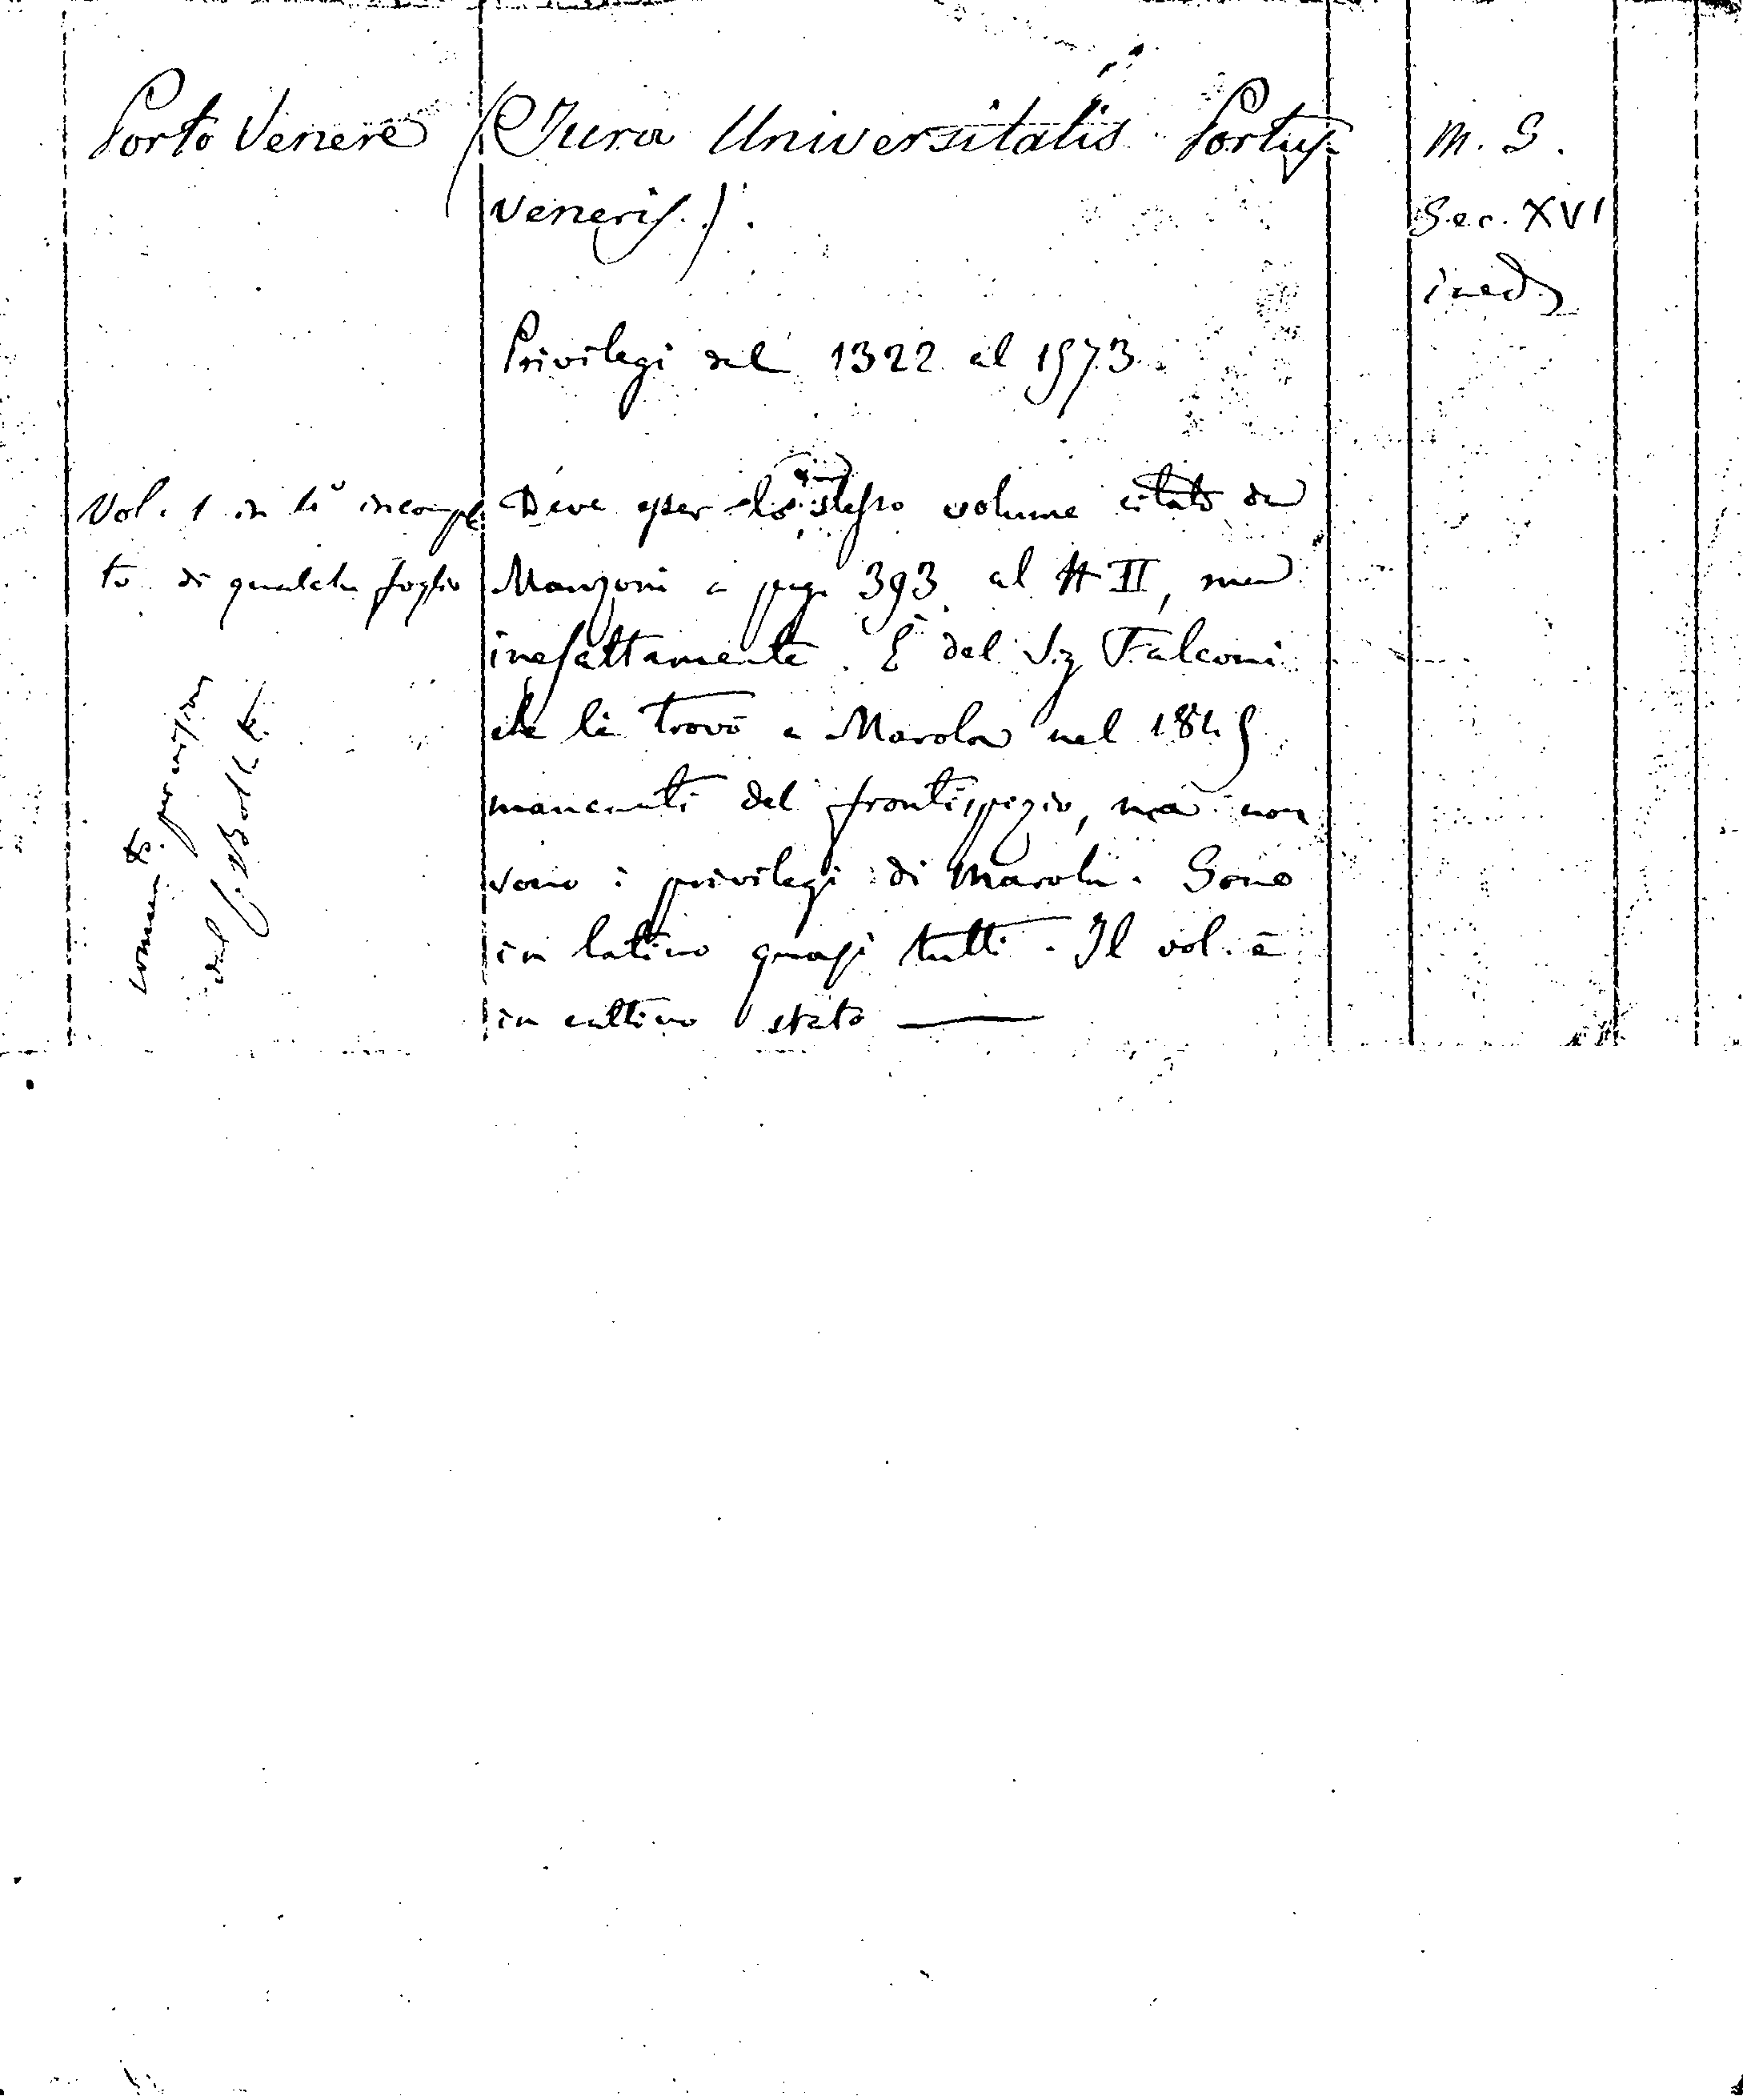 Porto Venere
(Jura Universitatis Portus
Veneris.).
M. S.
Sec. XVI
ined.
Privilegi dal 1322 al 1573.
Vol. 1 in 4° incomple
to di qualche foglio
Deve esser lo stesso volume citato da
Manzoni a pag. 393 al II, ma
inesattamente. È del Sig Falconi
che lo trovò a Marola nel 1845
mancanti del frontispizio, ma non
sono i privilegi di Marola. Sono
in latino quasi tutti. Il vol. è
in cattivo stato